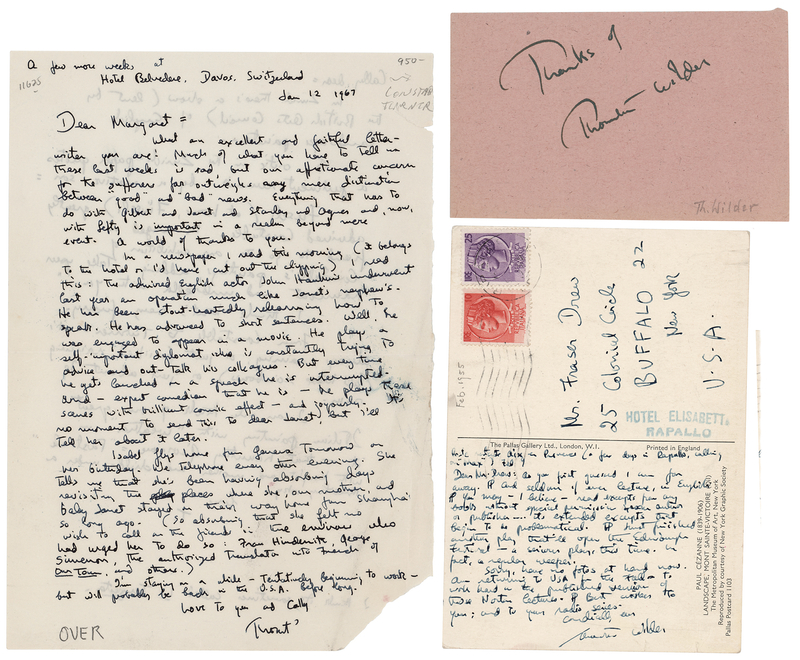 A few more weeks at
Hotel Belvedere, Davos, Switzerland
950-
11625
Jan 12 1967
Dear Margaret =
What an excellent and faithful letter-
writer you are! Much of what you have to tell us
these last weeks is sad but our affectionate concern
for the sufferer far outweighs any mere distinction
between "good" and "bad" news. Everything that has to
do with Gilbert and Janet and Stanley and Agnes and, now,
with Lefty is important in a realm beyond mere
event. A world of thanks to you.
In a newspaper I read this morning (it belongs
to the hotel or I'd have cut out the clipping) I read
this: the admired English actor John Hawkins underwent
last year an operation much like Janet's nephew's.
He has been stout-heartedly relearning how to
speak. He has advanced to short sentences. Well, he
was engaged to appear in a movie. He plays a
self-important diplomat who is constantly trying to
advise and out-talk his colleagues. But every time
he gets launched in a speech he is interrupted.
And - expert comedian that he is - he plays these
scenes with brilliant comic effect - and joyously.
no moment to send this to dear Janet, but I'll
tell her about it later.
Isabel flys home from Geneva tomorrow on
her birthday. We telephone every other evening. She
tells me that she's been having absorbing days
revisiting the places where she, our mother, and
baby Janet stayed on their way home from Shanghai
so long ago. (So absorbing that she felt no
wish to call on the friends in the environs who
had urged her to do so: Frau Hindemith, George
Simenon, the authorized translator into French of
Our Town and others.)
I'm staying on a while - tentatively beginning to work -
but will probably be back in the U.S.A. before long.
Love to you and Cally
Thornt'
OVER
Thanks of
Thornton Wilder
Th. Wilder
25
Feb 1955
Mr. Fraser Drew
25 Colonial Circle
BUFFALO 22
New York
U.S.A.
HOTEL ELISABETTA
RAPALLO
The Pallas Gallery Ltd., London, W.1.
Printed in England
PAUL CEZANNE (1839-1906)
LANDSCAPE, MONT SAINTE-VICTOIRE
The Metropolitan Museum of Art, New York
Reproduced by courtesy of New York Graphic Society
Pallas Postcard 1103
(a few days in Rapallo,
Dear Mr. Drew: As you just guessed I am far
away. If and seldom I ever lecture, in English
If you may - I believe - read excerpts from my
books without special permission
publisher - to extended excerpts that
begin to be problematical. I just finished
another play that'll open the Edinburgh
Festival - a serious play, this time. In
fact, a regular weeper.
Sorry, have no fotos at hand now.
Am returning to USA in the fall to
work hard on the published version of
those Norton lectures. Best wishes to
you; and to your radio series.
Cordially ever
Thornton Wilder